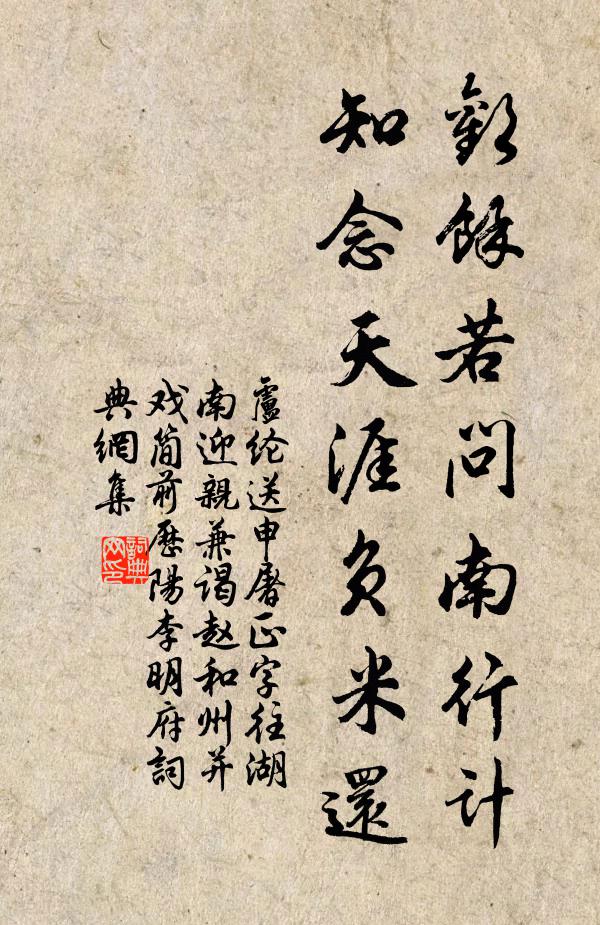 歡餘若問南行計
知念天涯負米還
盧纶送申屠正字往湖
南迎親兼謁赵和州并
戏简前歷陽李明府詞
典網集
詞典
网印